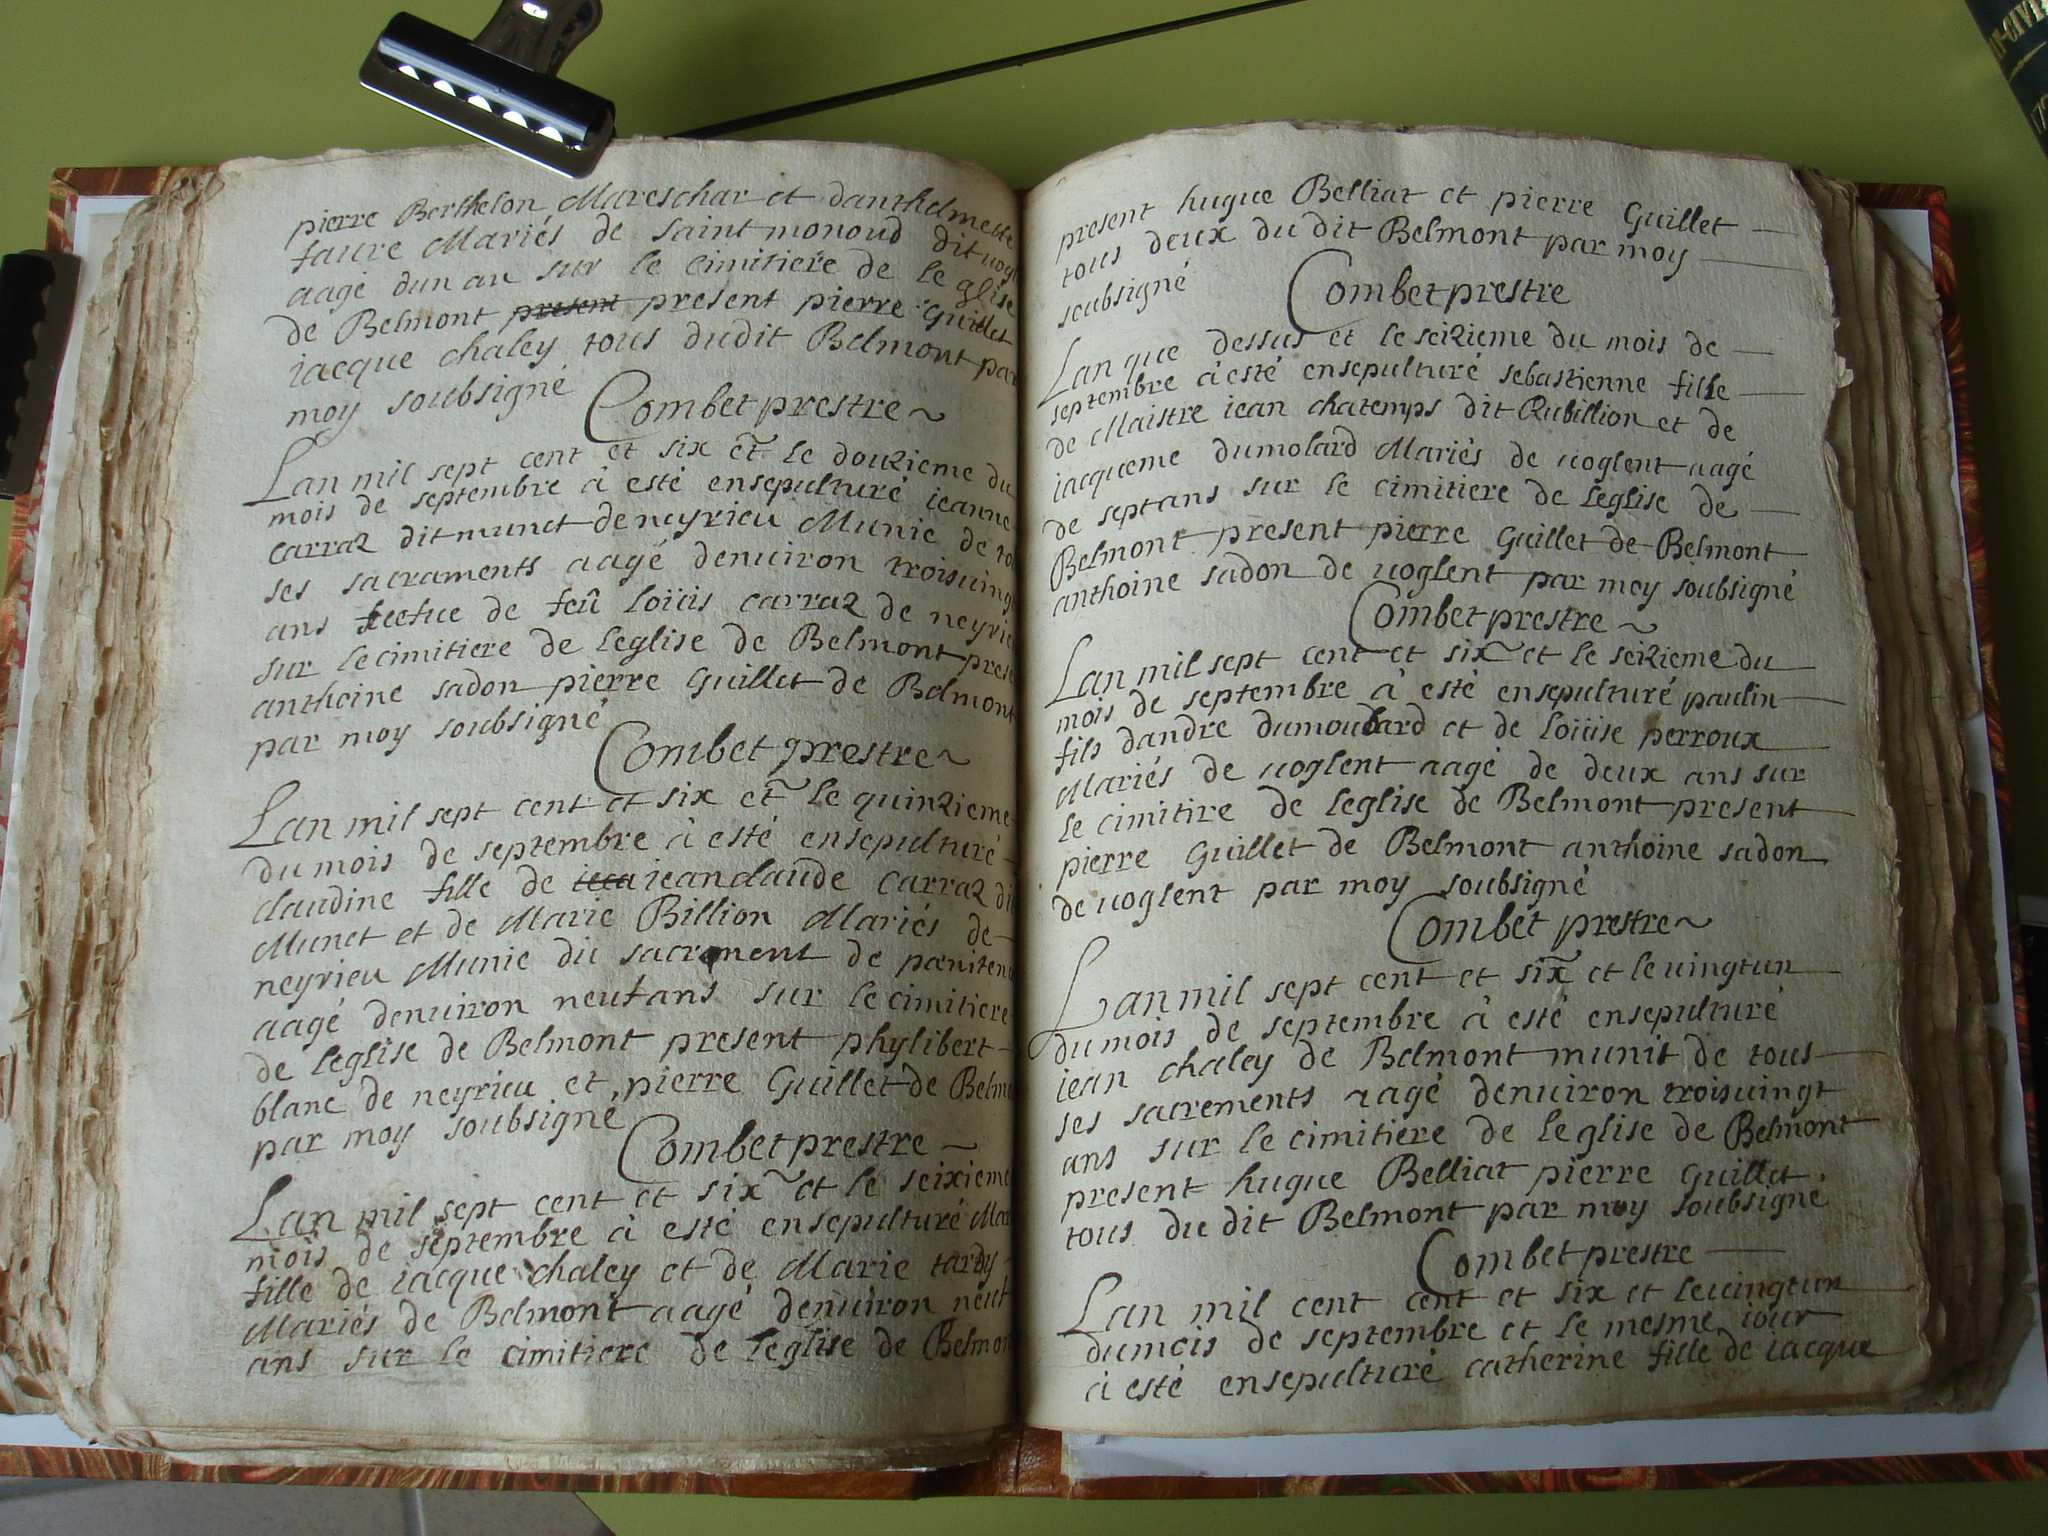 pierre Berthelon Mareschar et danthelmette
faure Mariés de saint monoud dit uogl
aagé dun an sur le cimitiere de le glise
de Belmont present present pierre Guillet
iacque chaley tous dudit Belmont par
moy soubsigné
Combet prestre
Lan mil sept cent et six et le douzieme du
mois de septembre à esté ensepulturé ieanne
carraz dit munet de neyrieu Munie de to
ses sacraments aagé denuiron troisuingt
ans de feû loüis carraz de neyrieu
sur le cimitiere de leglise de Belmont prese
anthoine sadon pierre Guillet de Belmont
par moy soubsigné
Combet prestre
Lan mil sept cent et six et le quinzieme
du mois de septembre à esté ensepulturé
claudine fille de iean claude carraz dit
Munet et de Marie Billion Mariés de
neyrieu Munie du sacrement de pœnitence
aagé denuiron neuf ans sur le cimitiere
de leglise de Belmont present phylibert
blanc de neyrieu et pierre Guillet de Belmo
par moy soubsigné
Combet prestre
Lan mil sept cent et six et le seixieme
mois de septembre à esté ensepulturé Mar
fille de iacque chaley et de Marie tardy
Mariés de Belmont aagé denuiron neuf
ans sur le cimitiere de leglise de Belmon
present hugue Belliat et pierre Guillet
tous deux du dit Belmont par moy
soubsigné
Combet prestre
Lan que dessus et le seizieme du mois de
septembre à esté ensepulturé sebastienne fille
de Maistre iean chatemps dit Rubillion et de
iacqueme dumolard Mariés de uoglent aagé
de sept ans sur le cimitiere de leglise de
Belmont present pierre Guillet de Belmont
anthoine sadon de uoglent par moy soubsigné
Combet prestre
Lan mil sept cent et six et le seizieme du
mois de septembre à esté ensepulturé paulin
fils dandre dumoulard et de loüise perroux
Mariés de uoglent aagé de deux ans sur
le cimitire de leglise de Belmont present
pierre Guillet de Belmont anthoine sadon
de uoglent par moy soubsigné
Combet prestre
Lan mil sept cent et six et le uingtun
du mois de septembre à esté ensepulturé
iean chaley de Belmont munit de tous
ses sacrements aagé denuiron troisuingt
ans sur le cimitiere de leglise de Belmont
present hugue Belliat pierre Guillet
tous du dit Belmont par moy soubsigné
Combet prestre
Lan mil cent cent et six et le uingtun
du mois de septembre et le mesme iour
à esté ensepulturé catherine fille de iacque